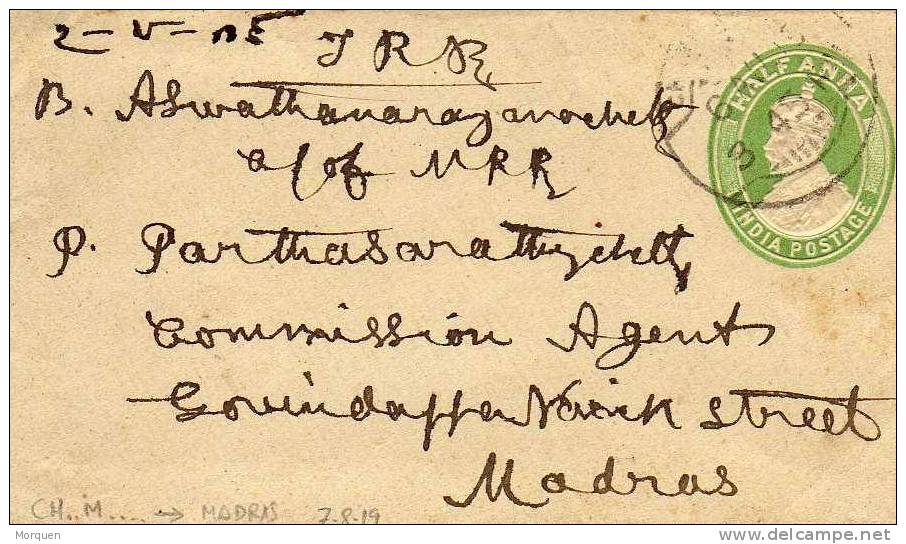 HALF ANNA
INDIA POSTAGE
B. Aswathanarayanachetty
c/of MRR
P. Parthasarathychetty
Commission Agent
Govindappa Naick Street
Madras
CH..M.... → MADRAS 7.8.19
Morquen
delcampe.net